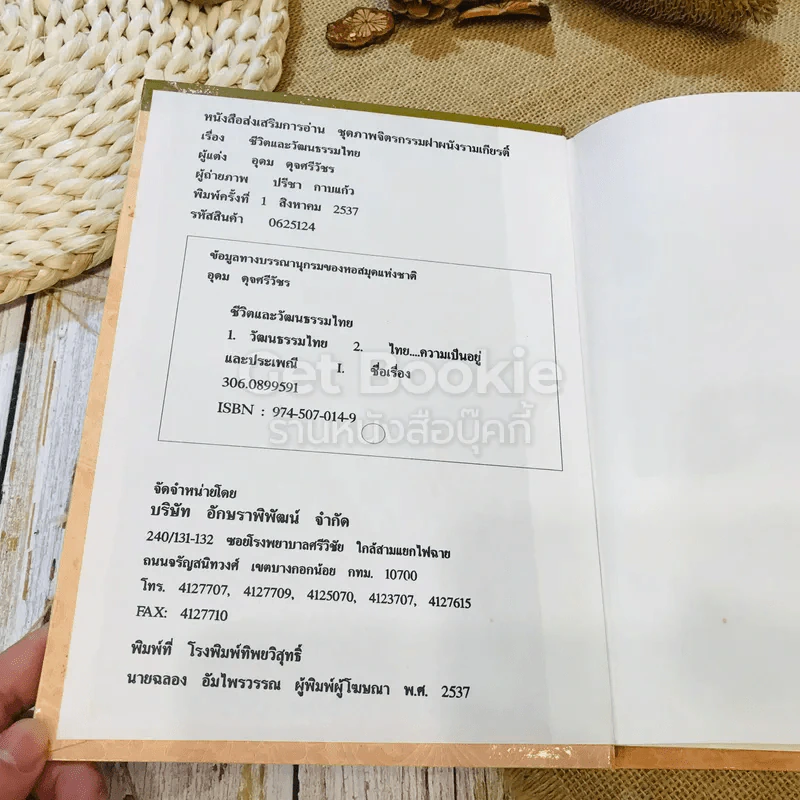 หนังสือส่งเสริมการอ่าน ชุดภาพจิตรกรรมฝาผนังรามเกียรติ์
เรื่อง ชีวิตและวัฒนธรรมไทย
ผู้แต่ง อุดม ดุจศรีวัชร
ผู้ถ่ายภาพ ปรีชา กาบแก้ว
พิมพ์ครั้งที่ 1 สิงหาคม 2537
รหัสสินค้า 0625124
ข้อมูลทางบรรณานุกรมของหอสมุดแห่งชาติ
อุดม ดุจศรีวัชร
ชีวิตและวัฒนธรรมไทย
1. วัฒนธรรมไทย 2. ไทย....ความเป็นอยู่
และประเพณี I. ชื่อเรื่อง
306.0899591
ISBN : 974-507-014-9
Get Bookie
ร้านหนังสือบุ๊คกี้
จัดจำหน่ายโดย
บริษัท อักษราพิพัฒน์ จำกัด
240/131-132 ซอยโรงพยาบาลศรีวิชัย ใกล้สามแยกไฟฉาย
ถนนจรัญสนิทวงศ์ เขตบางกอกน้อย กทม. 10700
โทร. 4127707, 4127709, 4125070, 4123707, 4127615
FAX: 4127710
พิมพ์ที่ โรงพิมพ์ทิพยวิสุทธิ์
นายฉลอง อัมไพรวรรณ ผู้พิมพ์ผู้โฆษณา พ.ศ. 2537